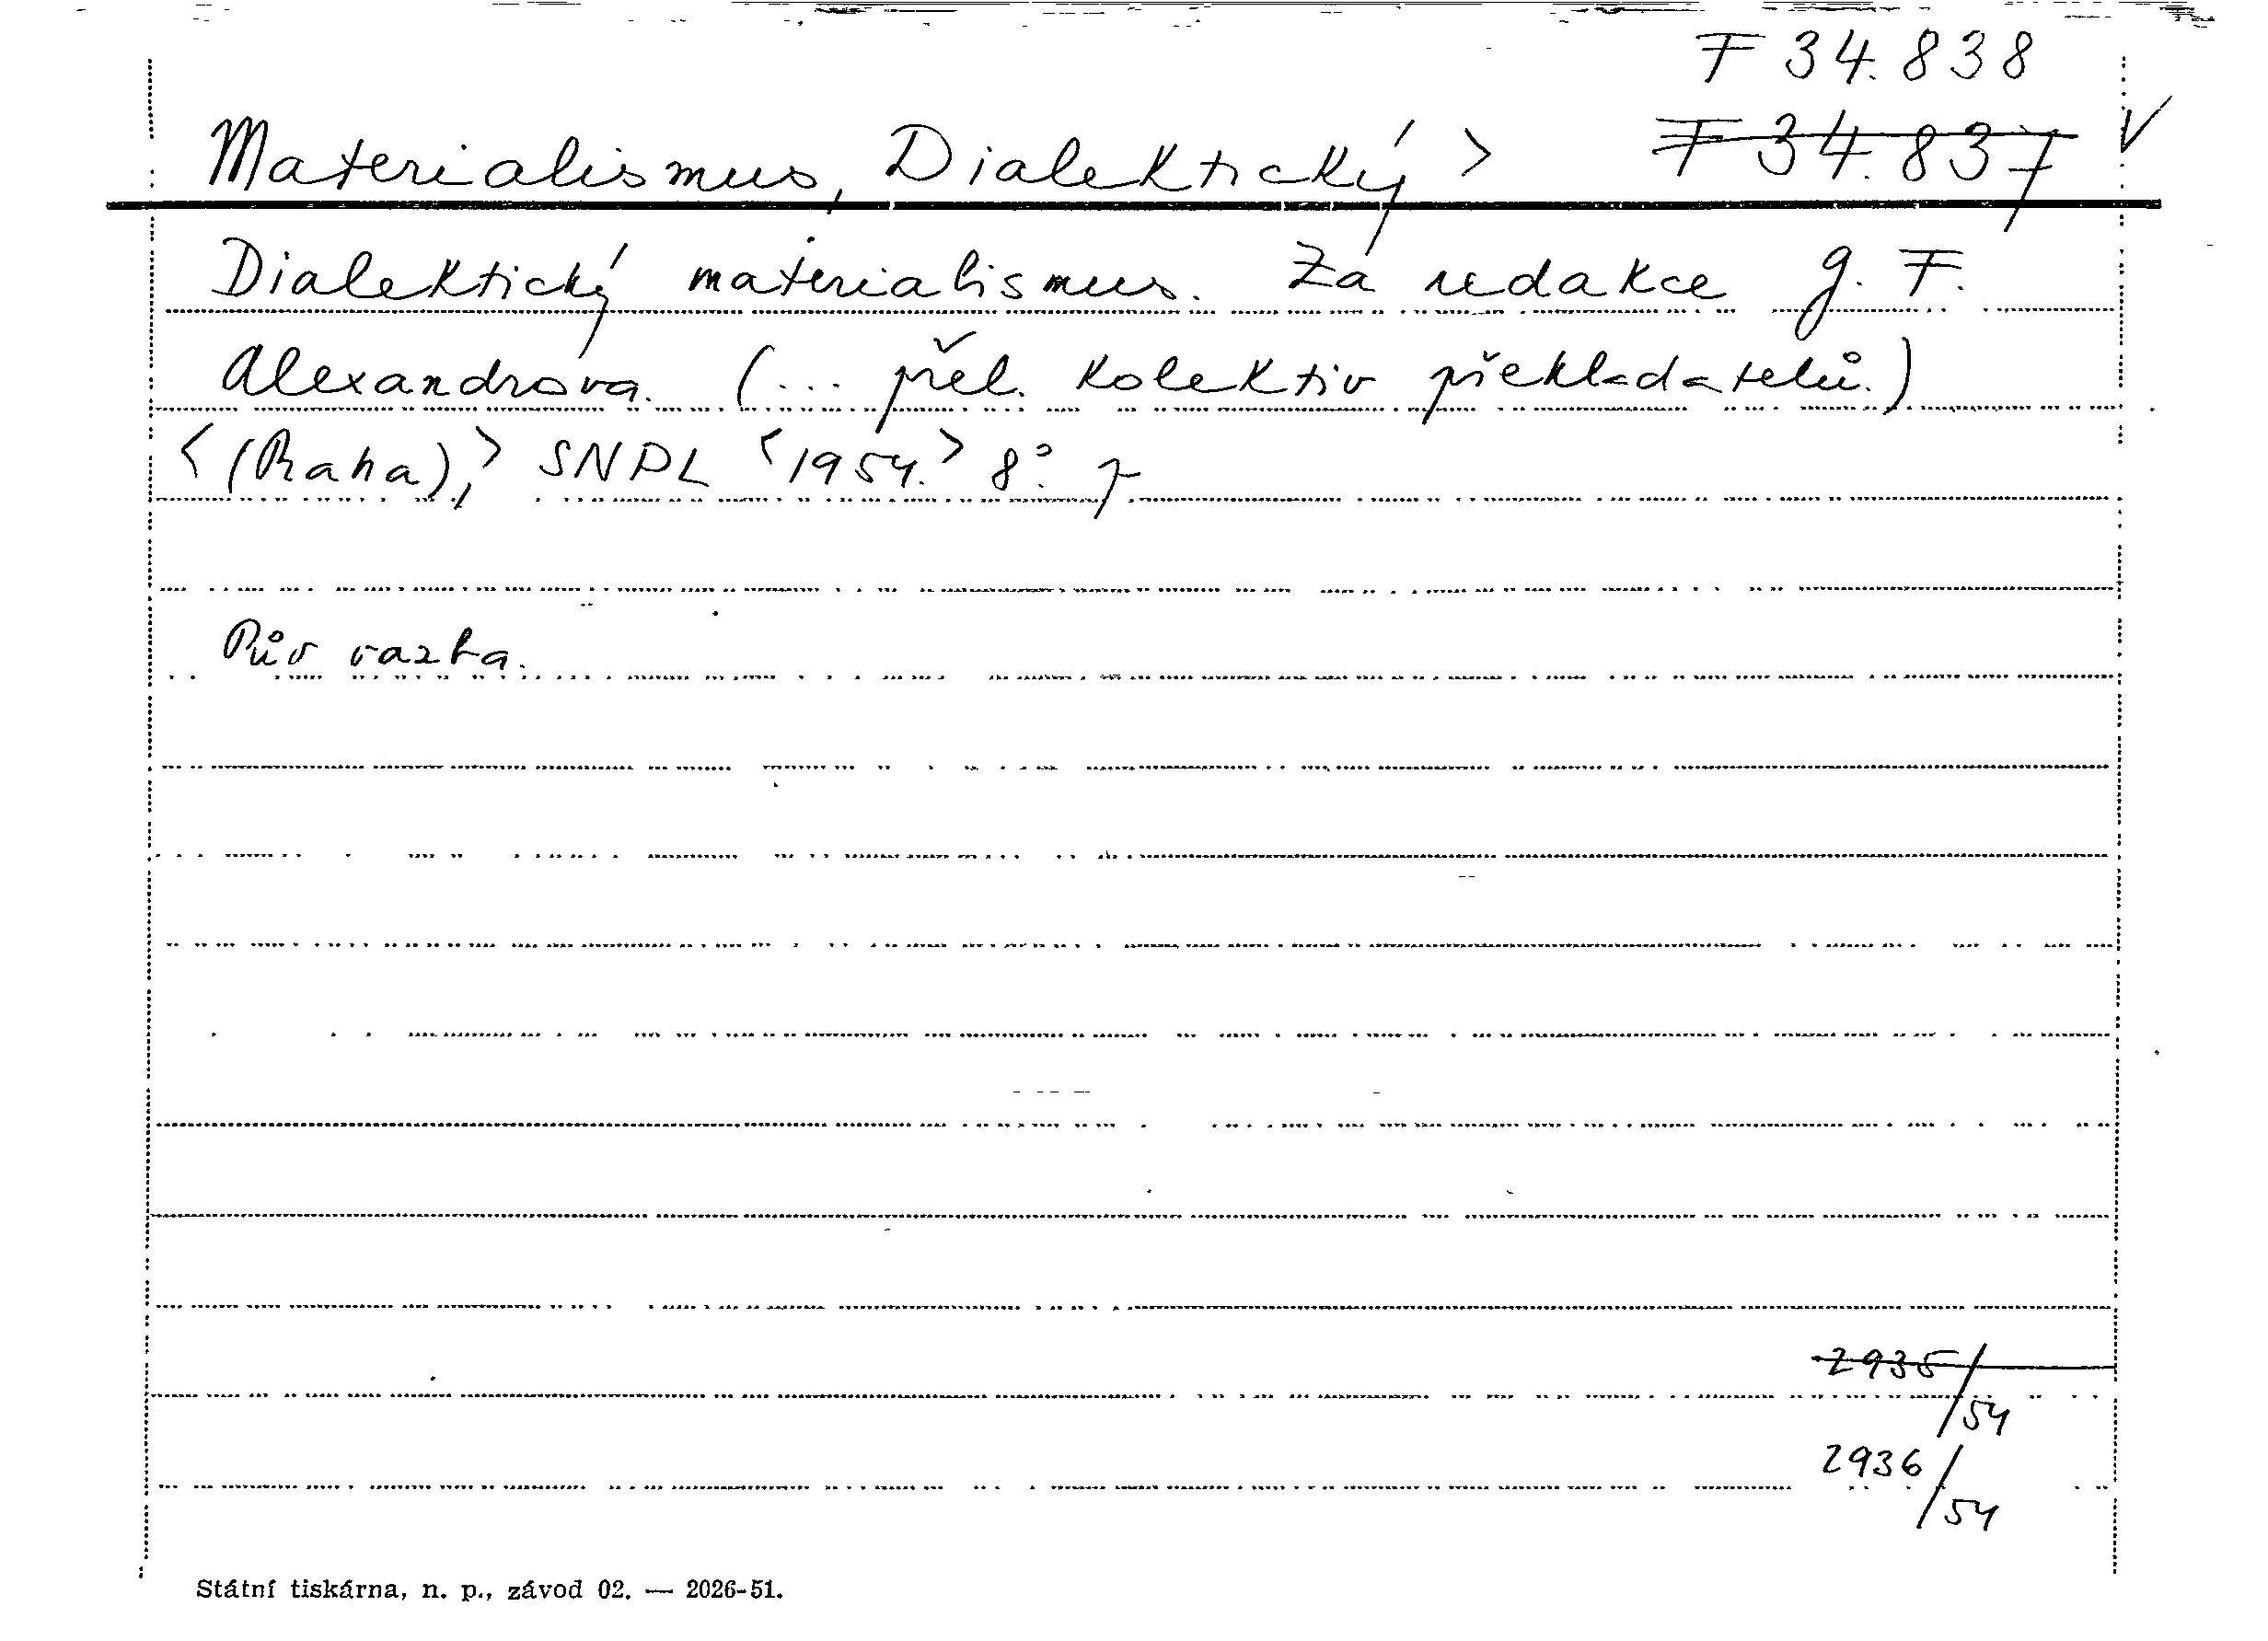 F 34.838
Materialismus, Dialektický > F 34.837 V
Dialektický materialismus. Za redakce G. F.
Alexandrova. (... přel. Kolektiv překladatelů.)
<(Praha),> SNPL <1954.> 8°. p
Pův vazba.
2935/54
2936/54
Státní tiskárna, n. p., závod 02. — 2026-51.